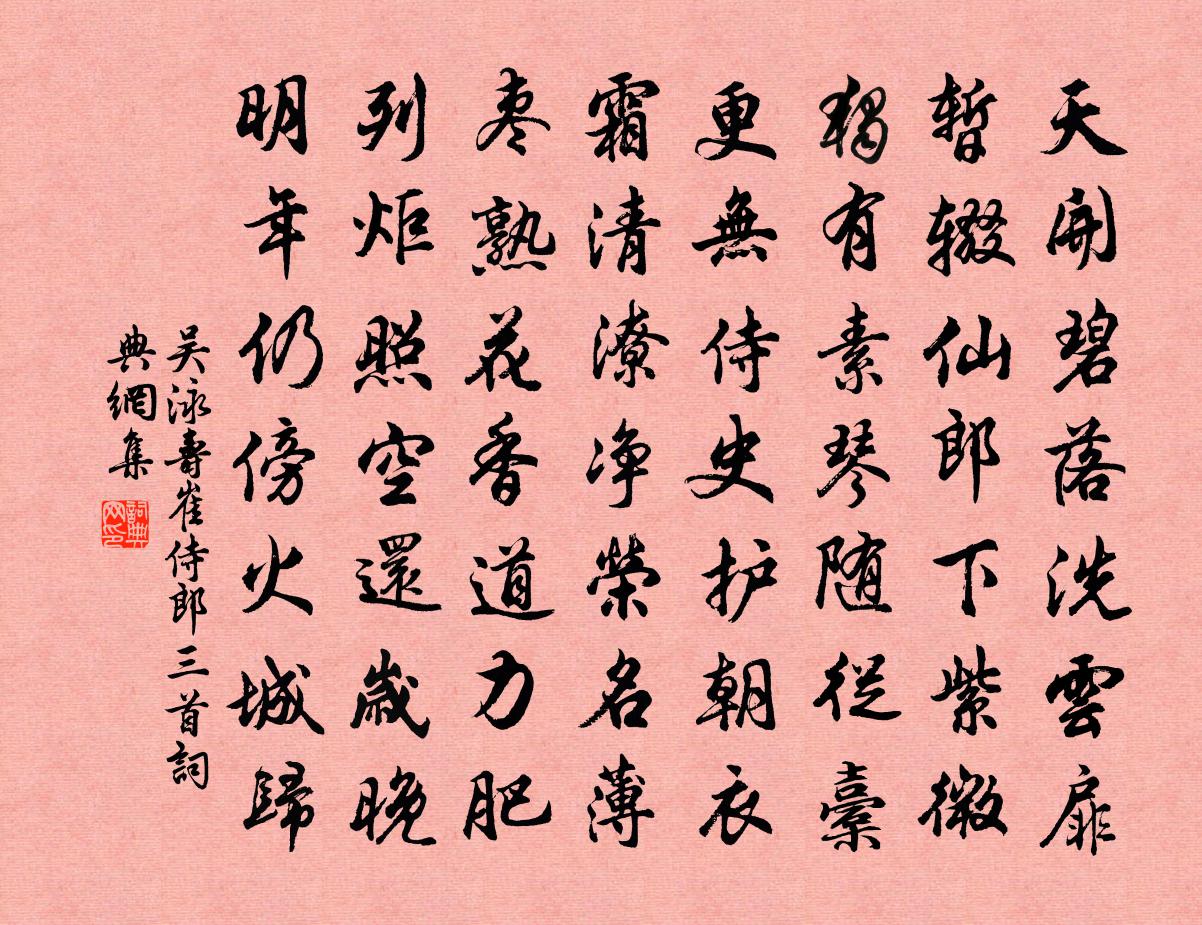 天開碧落洗雲扉
暫輟仙郎下紫微
獨有素琴随從橐
更無侍史护朝衣
霜清潦净榮名薄
枣熟花香道力肥
列炬照空還歲晚
明年仍傍火城歸
吴泳壽崔侍郎三首詞
典網集
詞典
网印